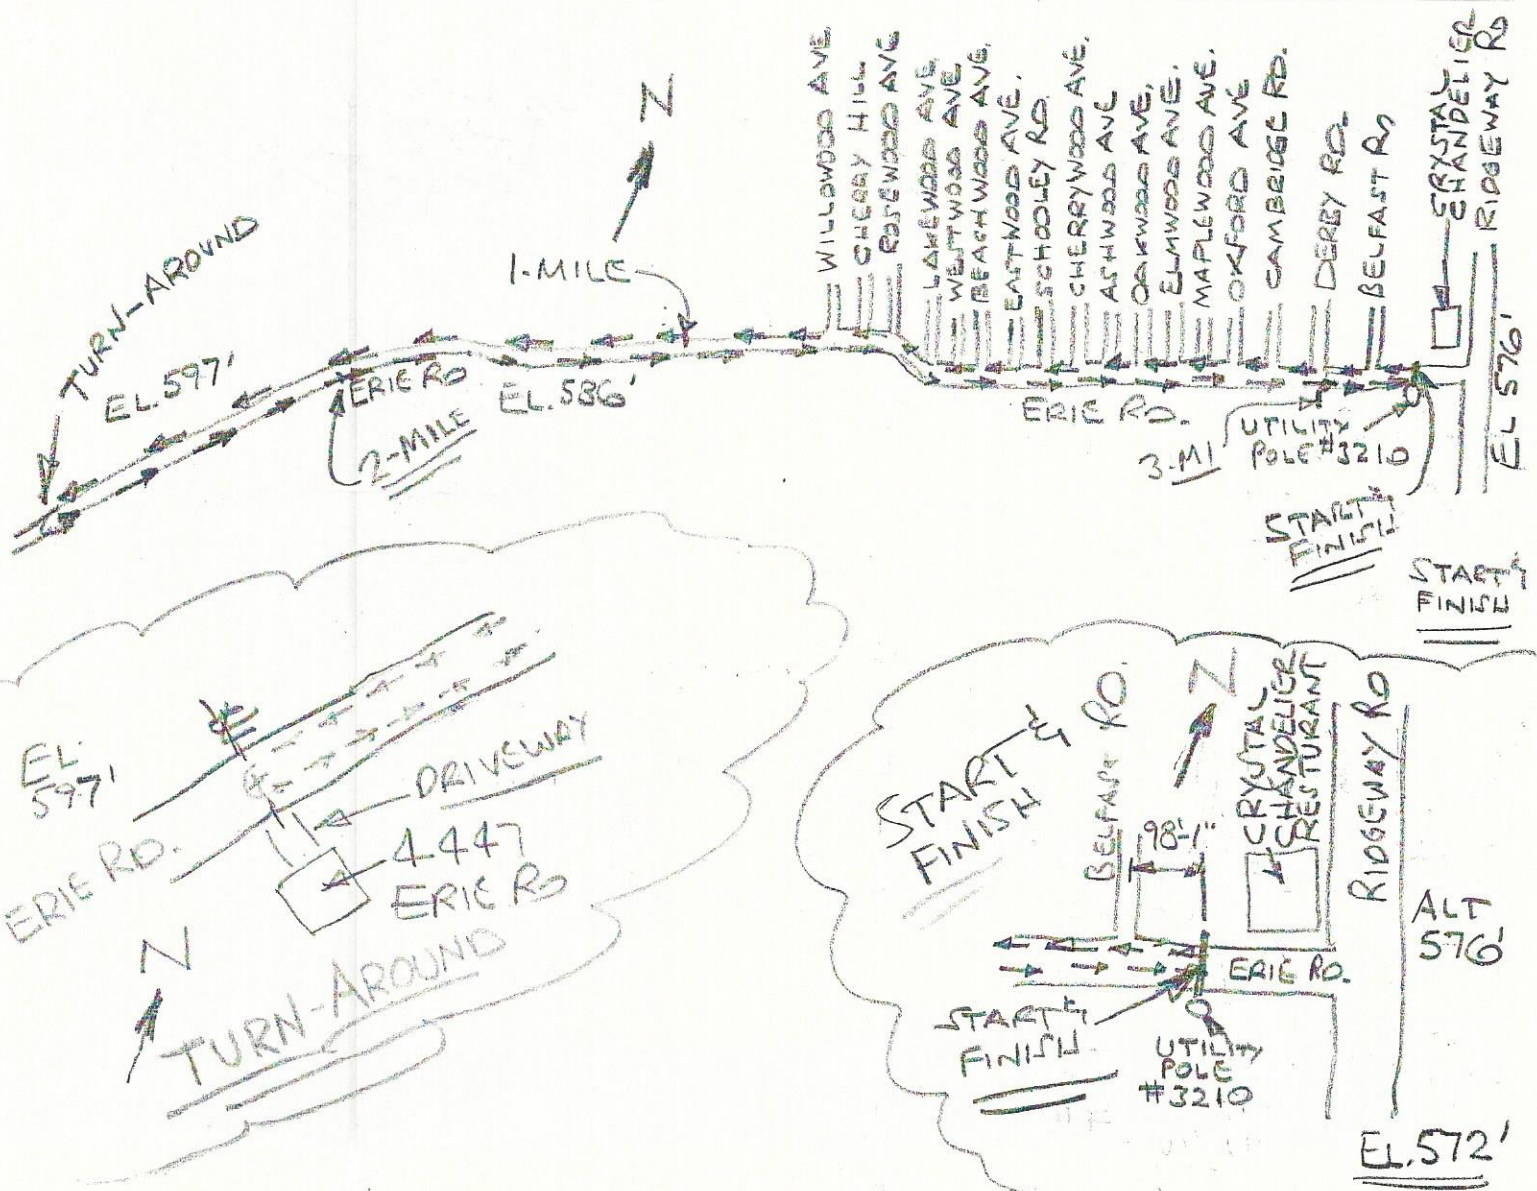 WILLOWOOD AVE
CHERRY HILL
ROSEWOOD AVE
LAKEWOOD AVE.
WESTWOOD AVE
BEACHWOOD AVE.
EASTWOOD AVE.
SCHOOLEY RD.
CHERRYWOOD AVE.
ASHWOOD AVE
OAKWOOD AVE.
ELMWOOD AVE.
MAPLEWOOD AVE.
OXFORD AVE
CAMBRIDGE RD.
DERBY RD.
BELFAST RD
CRYSTAL
CHANDELIER
RIDGEWAY RD
N
1-MILE
TURN-AROUND
EL.597'
ERIE RD
EL.586'
2-MILE
ERIE RD.
3-MI
UTILITY
POLE #3210
EL 576'
START &
FINISH
START &
FINISH
EL.
597'
ERIE RD.
DRIVEWAY
4447
ERIE RD
N
TURN-AROUND
START &
FINISH
BELFAST RD.
N
98'-1"
CRYSTAL
CHANDELIER
RESTURANT
RIDGEWAY RD
ALT
576'
ERIE RD.
START &
FINISH
UTILITY
POLE
#3210
EL.572'